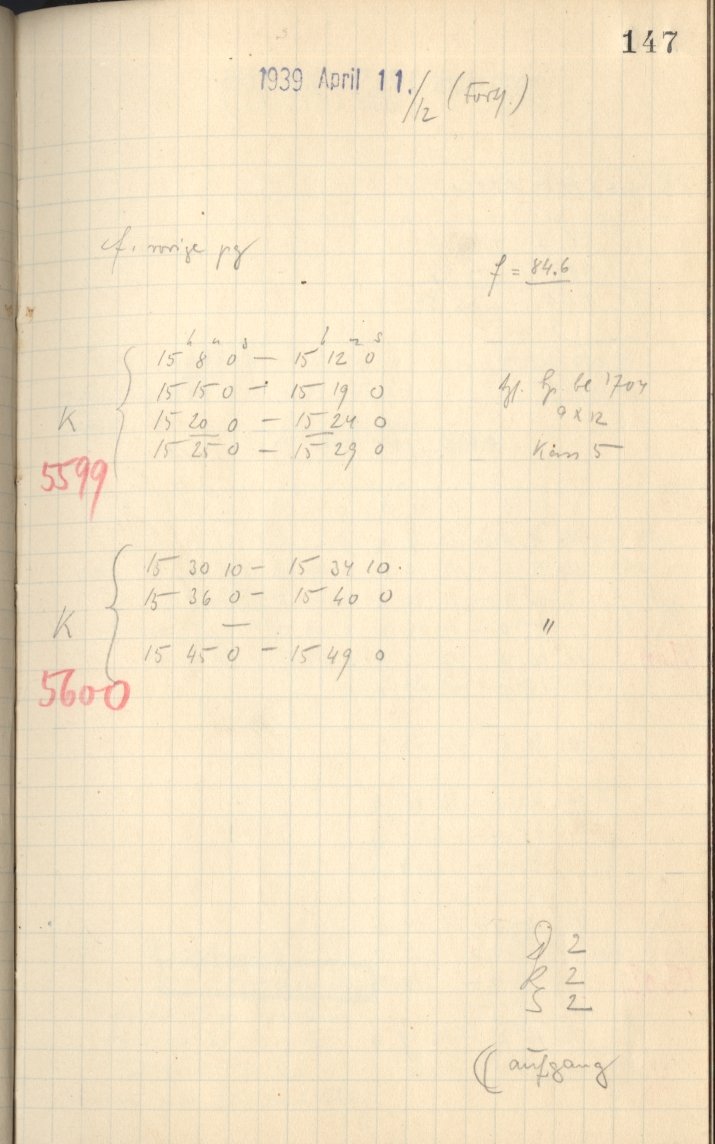 147
1939 April 11./12 (Forts.)
cf. vorige pg
f = 84.6
15h 8m 0s — 15h 12m 0s
15 15 0 — 15 19 0
K 15 20 0 — 15 24 0
9 x 12
15 25 0 — 15 29 0
5
5599
15 30 10 — 15 34 10.
15 36 0 — 15 40 0
K — "
15 45 0 — 15 49 0
5600
2
R 2
S 2
(( aufgang